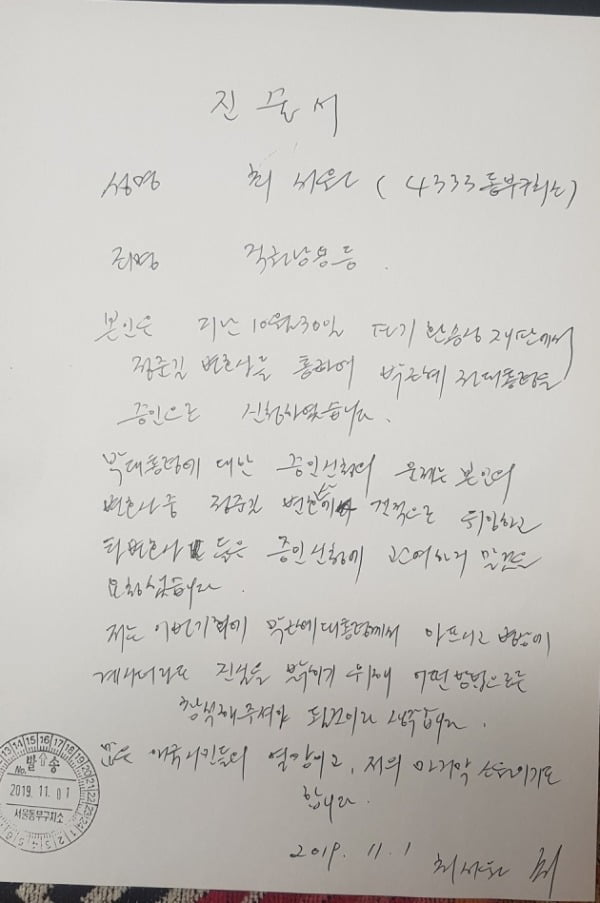 진술서
성명 최서원 (4333 동부구치소)
죄명 직권남용 등.
본인은 지난 10월 30일 파기환송심 재판에서
정준길 변호사를 통하여 박근혜 전대통령을
증인으로 신청하였습니다.
박대통령에 대한 증인신청의 문제는 본인의
변호사중 정준길 변호사에게 전적으로 위임하고
타변호사 들은 증인신청에 관여하지 말것을
요청했습니다.
저는 이번기회에 박근혜대통령께서 아프시고 병상에
계시더라도 진실을 밝히기 위해 어떤방법으로든
참석해주셔야 될것이라 생각합니다.
많은 애국시민들의 열망이고, 저의 마지막 소원이기도
합니다.
2019. 11. 1 최서원
발송
No.
2019. 11. 01
서울동부구치소